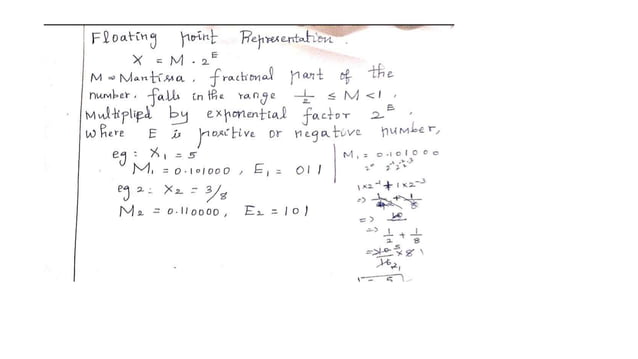 Floating point Representation.
X = M . 2^E
M = Mantissa, fractional part of the
number. falls in the range 1/2 ≤ M < 1.
Multiplied by exponential factor 2^E.
where E is positive or negative number,
eg: X₁ = 5
M₁ = 0.101000, E₁ = 011
eg 2: X₂ = 3/8
M₂ = 0.110000, E₂ = 101
M₁ = 0.101000
2⁰ 2⁻¹2⁻²2⁻³
1×2⁻¹ + 1×2⁻³
=>
=> 10
=> 1/2 + 1/8